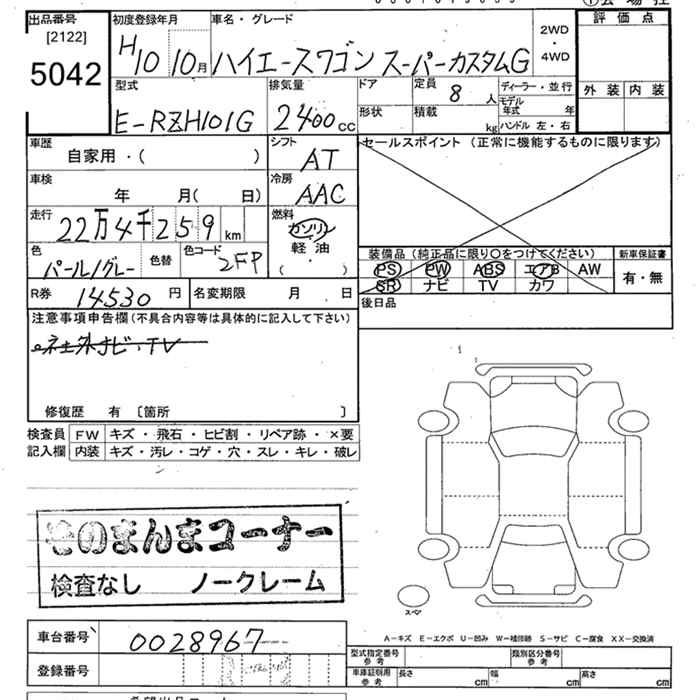 出品番号 初度登録年月 車名・グレード
[2122]
5042
H10 10月 ハイエースワゴン スーパーカスタムG
2WD
・
4WD
評価点
外装 内装
型式 排気量 ドア 定員 8 人 ディーラー・並行
E-RZH101G 2400 CC 形状 積載 kg モデル年式 年
ハンドル 左・右
車歴 自家用・( ) シフト AT
セールスポイント (正常に機能するものに限ります)
車検 年 月( 日) 冷房 AAC
走行 22万4千259 km 燃料 ガソリン
軽油
( )
色 パール/グレー 色替 色コード 2FP
装備品 (純正品に限り○をつけてください) 新車保証書
PS PW ABS エアB AW 有・無
SR ナビ TV カワ
R券 14530 円 名変期限 月 日
後日品
注意事項申告欄 (不具合内容等は具体的に記入して下さい)
社外ナビ・TV
修復歴 有 〔箇所 〕
検査員 FW キズ・飛石・ヒビ割・リペア跡・×要
記入欄 内装 キズ・汚レ・コゲ・穴・スレ・キレ・破レ
そのまんまコーナー
検査なし ノークレーム
スペア
A-キズ E-エクボ U-凹み W-補修跡 S-サビ C-腐食 XX-交換済
車台番号 0028967
登録番号
型式指定番号 参考 類別区分番号 参考
車庫証明用 参考 長さ cm 幅 cm 高さ cm